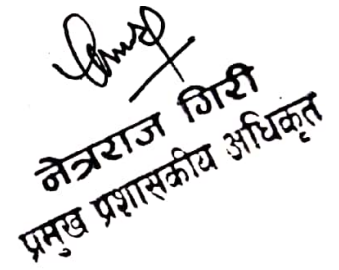 नेत्रराज गिरी
प्रमुख प्रशासकीय अधिकृत